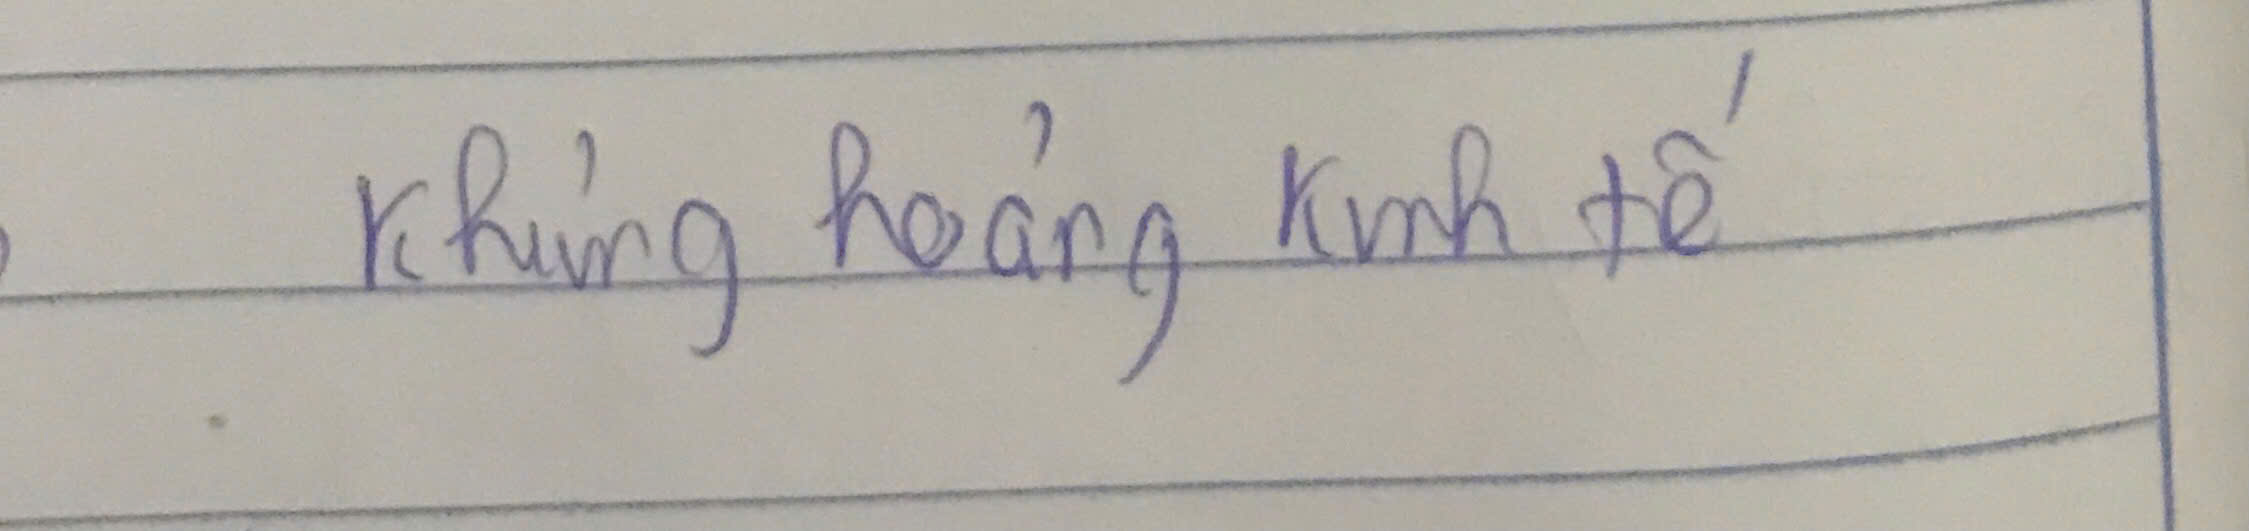 Khủng hoảng kinh tế